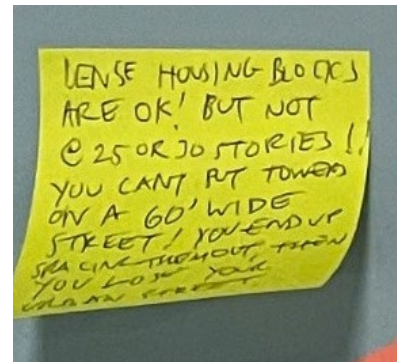 DENSE HOUSING BLOCKS
ARE OK! BUT NOT
@ 25 OR 30 STORIES!!
YOU CANT PUT TOWERS
ON A 60' WIDE
STREET! YOU END UP
SPACING THEM OUT, THEN
YOU LOSE YOUR
URBAN STREET.